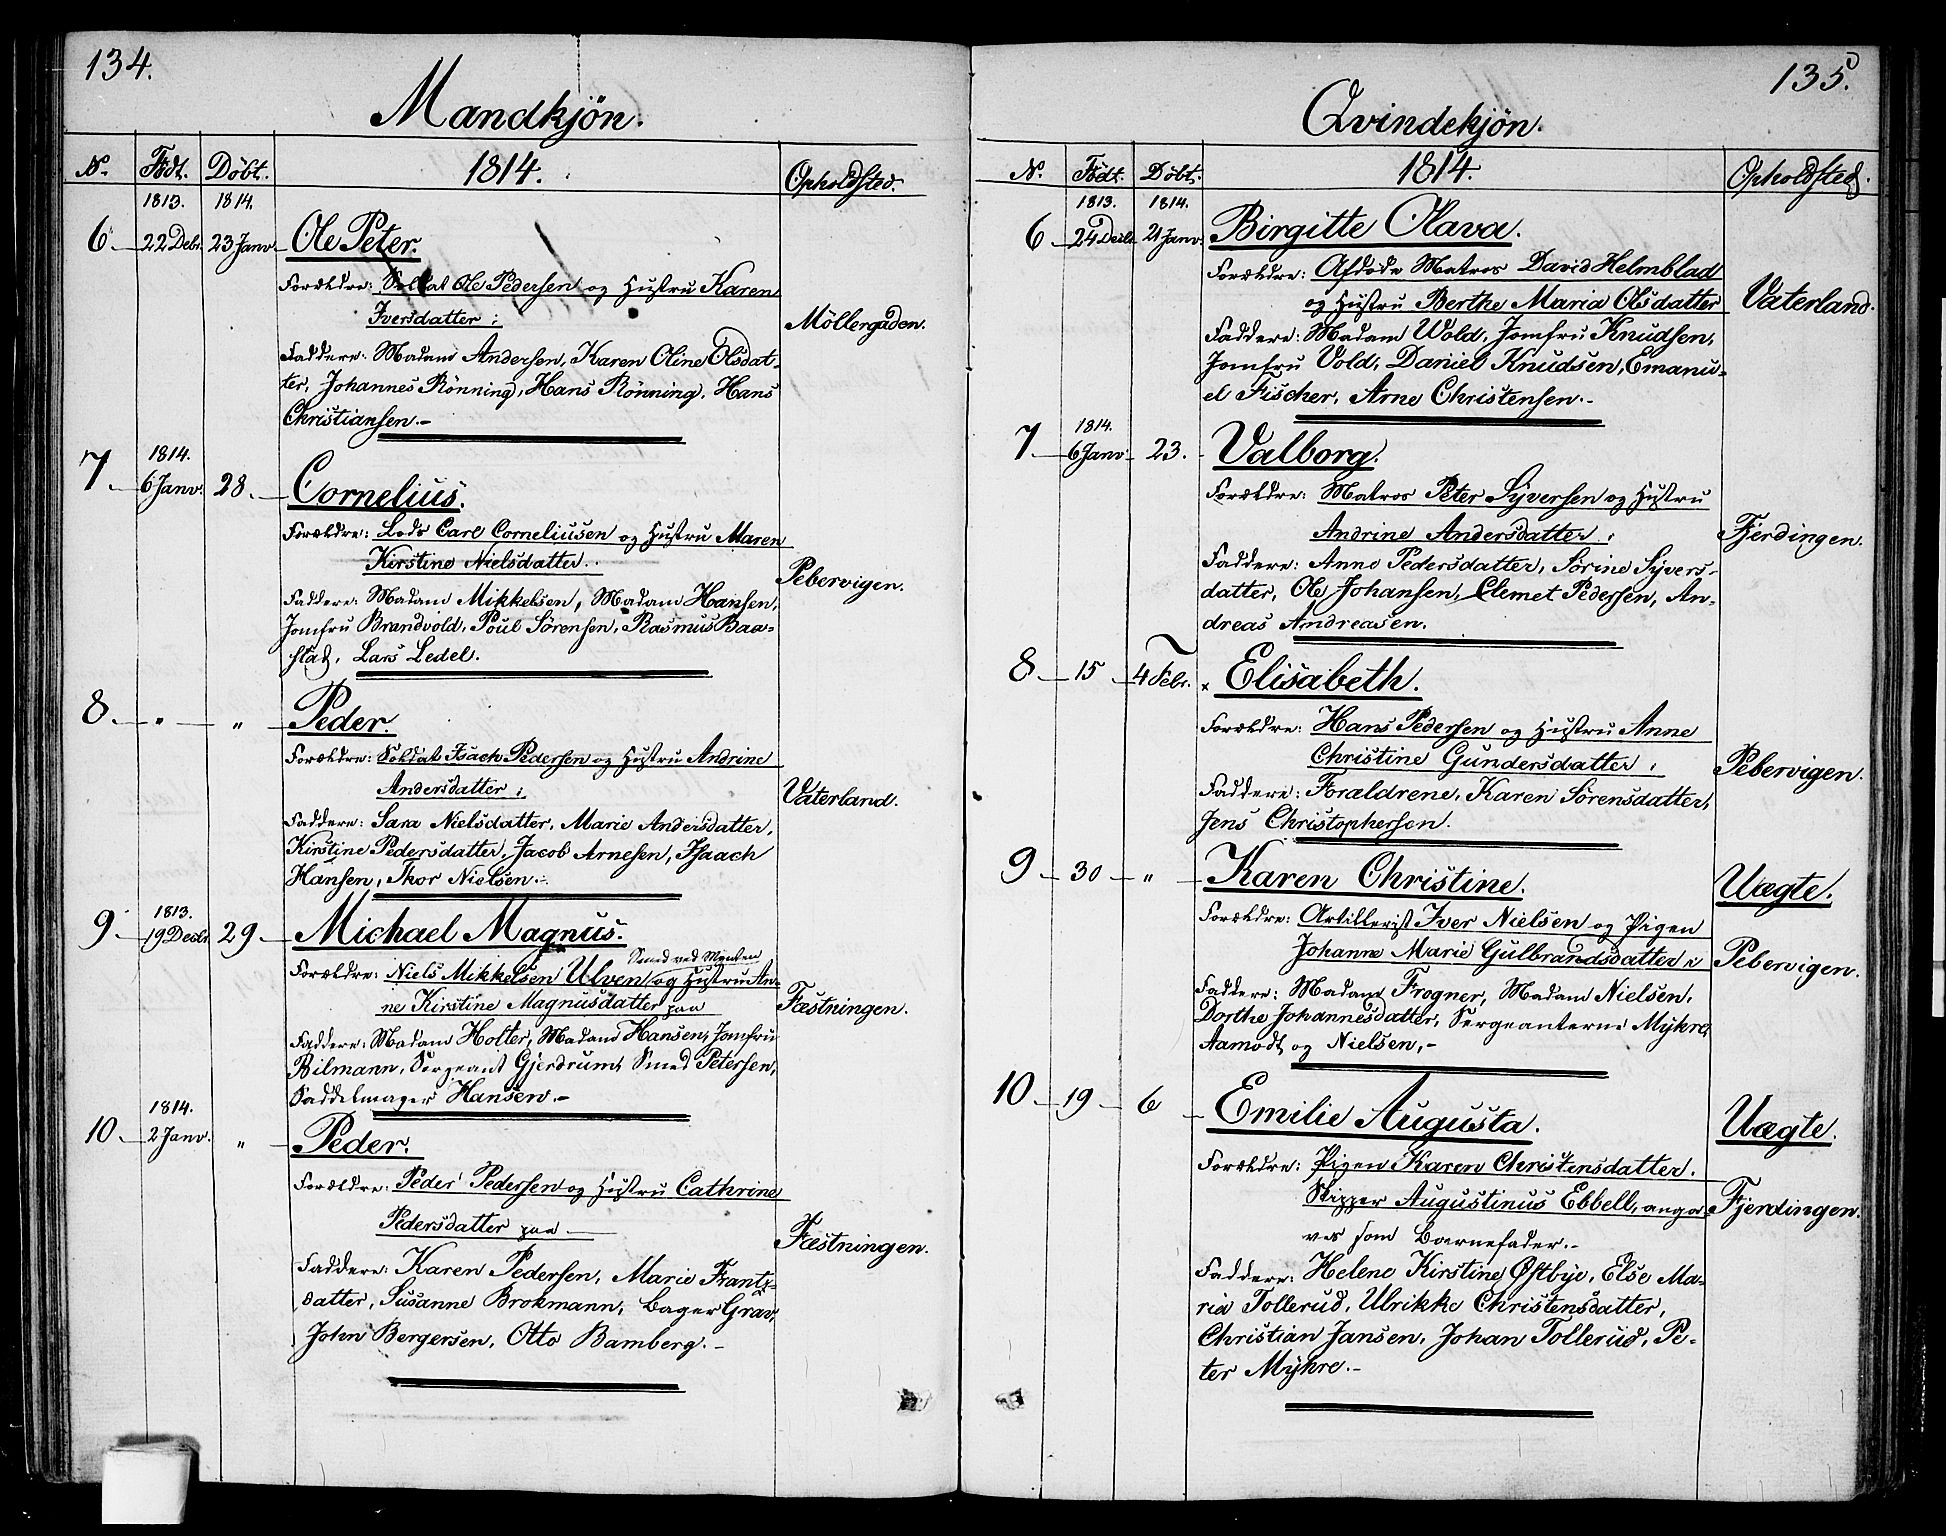 134.
Mandkjön.
No. Födt. Döbt. 1814. Opholdsted.
1813. 1814.
6 22 Debr. 23 Janv. Ole Peter.
Forældre: Soldat Ole Pedersen og Hustru Karen
Iversdatter;
Möllergaden.
Faddere: Madam Andersen, Karen Oline Olsdat-
ter, Johannes Rönning, Hans Rönning, Hans
Christiansen.-
1814.
7 6 Janv. 28. Cornelius.
Forældre: Lods Carl Corneliusen og Hustru Maren
Kirstine Nielsdatter.
Pebervigen.
Faddere: Madam Mikkelsen, Madam Hansen,
Jomfru Brandvold, Poul Sörensen, Rasmus Baa-
stad, Lars Ledel.
8. " " Peder.
Forældre: Soldat Isach Pedersen og Hustru Andrine
Andersdatter;
Vaterland.
Faddere: Sara Nielsdatter, Marie Andersdatter,
Kirstine Pedersdatter, Jacob Arnesen, Isaach
Hansen, Thor Nielsen.-
1813.
9 19 Decbr 29 Michael Magnus.
Smed ved Mynten
Forældre: Niels Mikkelsen Ulven, og Hustru An-
ne Kirstine Magnusdatter paa
Fæstningen.
Faddere: Madam Holter, Madam Hansen, Jomfru
Bilmann, Sergeant Gjerdrum, Smed Petersen,
Saddelmager Hansen.-
1814.
10 2 Janv. " Peder.
Forældre: Peder Pedersen og Hustru Cathrine
Pedersdatter paa
Fæstningen.
Faddere: Karen Pedersen, Marie Frantz-
datter, Susanne Brokmann, Bager Grav,
John Bergersen, Otto Bamberg.-
135.
Qvindekjön.
No. Födt. Döbt. 1814. Opholdsted.
1813. 1814.
6 24 Decbr 21 Janv. Birgitte Olava.
Forældre: Afdöde Matros David Helmblad
og Hustru Berthe Maria Olsdatter
Vaterland.
Faddere: Madam Wold, Jomfru Knudsen,
Jomfru Vold, Daniel Knudsen, Emanu-
el Fischer, Arne Christensen.-
1814.
7 6 Janv 23. Valborg.
Forældre: Matros Peter Syversen og Hustru
Andrine Andersdatter;
Fjerdingen.
Faddere: Anne Pedersdatter, Sörine Syvers-
datter, Ole Johansen, Clemet Pedersen, An-
dreas Andreasen.
8 15 4 Febr. x Elisabeth.
Forældre: Hans Pedersen og Hustru Anne
Christine Gundersdatter;
Pebervigen.
Faddere: Forældrene, Karen Sörensdatter,
Jens Christophersen.
9 30 " Karen Christine.
Uægte.
Forældre: Artillerist Iver Nielsen og Pigen
Johanne Marie Gulbrandsdatter
Pebervigen.
Faddere: Madam Frogner, Madam Nielsen,
Dorthe Johannesdatter, Sergeanterne Myhre,
Aamodt og Nielsen.-
10 19 6 Emilie Augusta.
Uægte.
Forældre: Pigen Karen Christensdatter.
Skipper Augustinus Ebbell, angi-
ves som Barnefader.-
Fjerdingen.
Faddere: Helene Kirstine Østbye, Else Ma-
ria Tollerud, Ulrikke Christensdatter,
Christian Jansen, Johan Tollerud, Pe-
ter Myhre.-